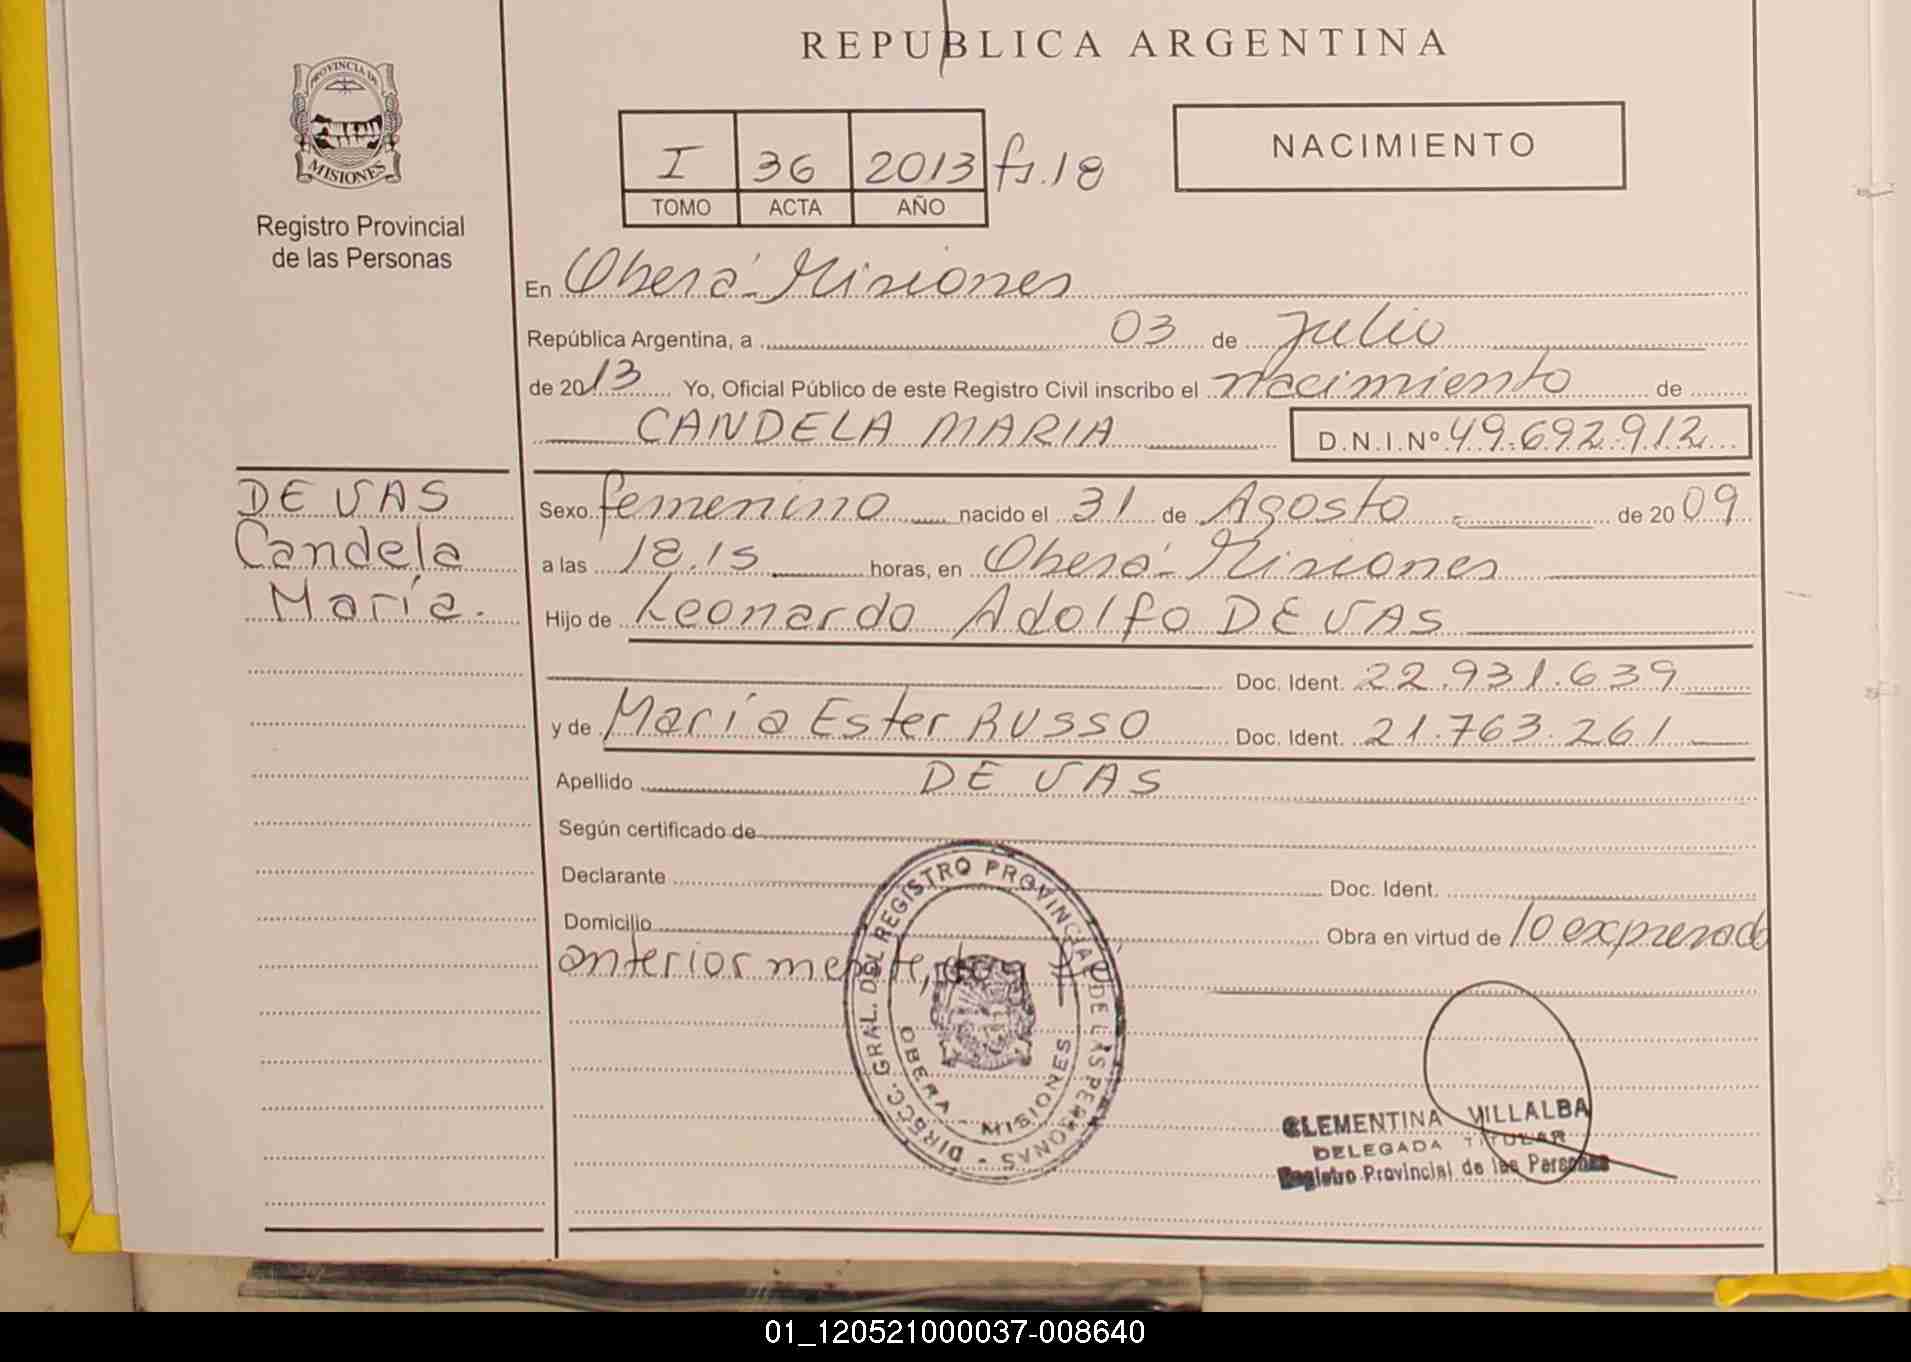 REPUBLICA ARGENTINA
PROVINCIA DE
MISIONES
Registro Provincial
de las Personas
I 36 2013 fs.18
TOMO ACTA AÑO
NACIMIENTO
En Oberá-Misiones
República Argentina, a 03 de Julio
de 2013 Yo, Oficial Público de este Registro Civil inscribo el nacimiento de
CANDELA MARIA D.N.I.Nº 49.692.912
DE VAS
Candela
María.
Sexo femenino nacido el 31 de Agosto de 2009
a las 18.15 horas, en Oberá-Misiones
Hijo de Leonardo Adolfo DE VAS
Doc. Ident. 22.931.639
y de María Ester RUSSO Doc. Ident. 21.763.261
Apellido DE VAS
Según certificado de
Declarante Doc. Ident.
Domicilio Obra en virtud de lo expresado
anteriormente, doy
DIRECC. GRAL. DEL REGISTRO PROVINCIAL DE LAS PERSONAS -
OBERA - MISIONES
CLEMENTINA VILLALBA
DELEGADA TITULAR
Registro Provincial de las Personas
01_120521000037-008640